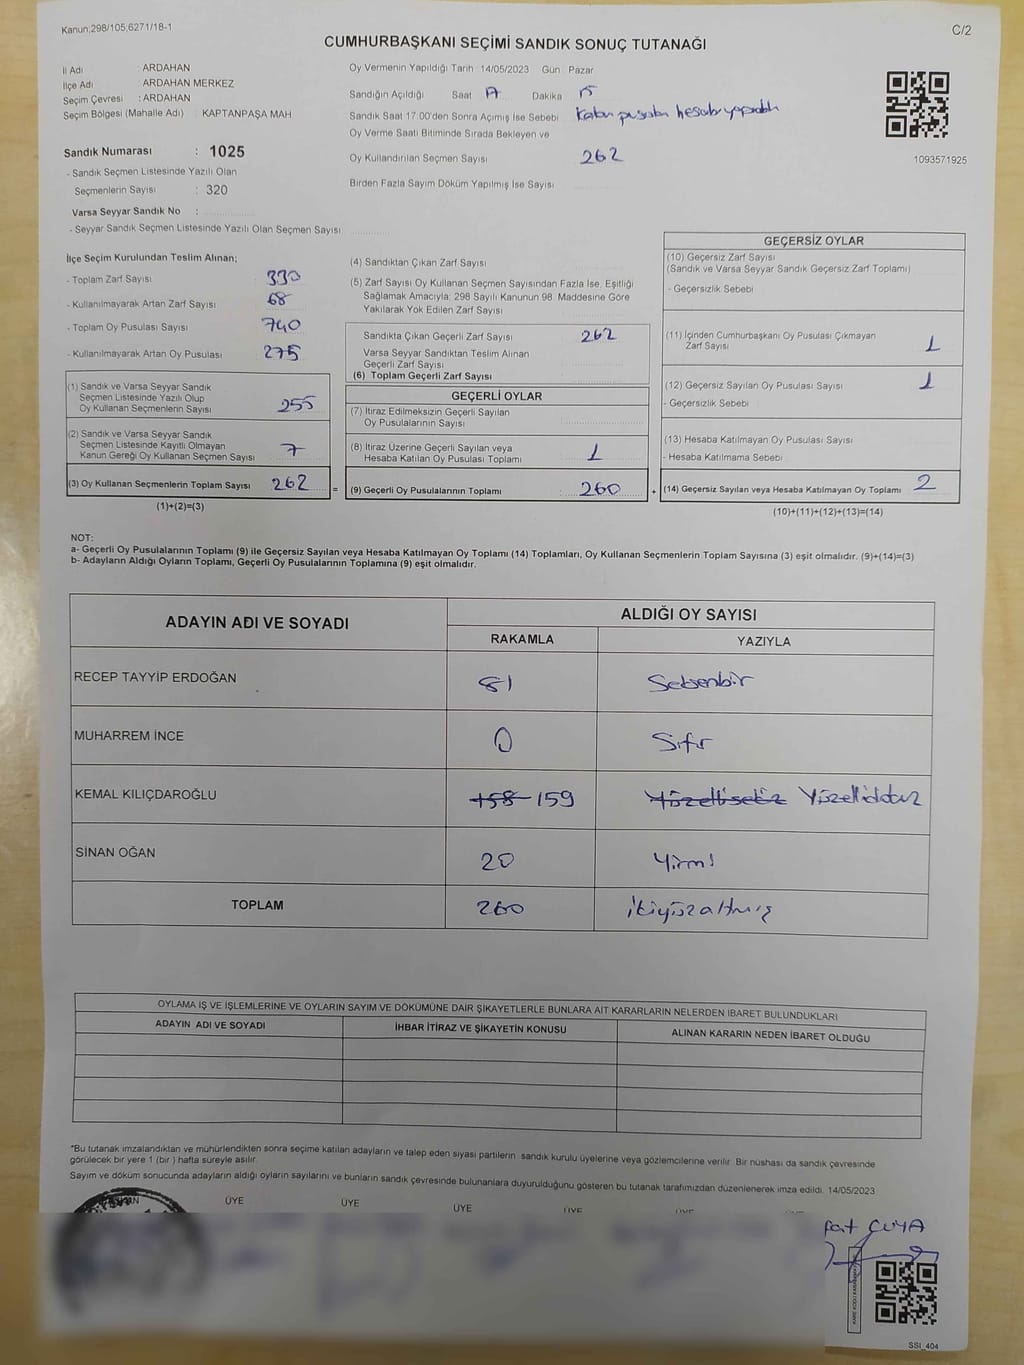 Kanun;298/105;6271/18-1
C/2
CUMHURBAŞKANI SEÇİMİ SANDIK SONUÇ TUTANAĞI
İl Adı : ARDAHAN
İlçe Adı : ARDAHAN MERKEZ
Seçim Çevresi : ARDAHAN
Seçim Bölgesi (Mahalle Adı) : KAPTANPAŞA MAH
Sandık Numarası : 1025
- Sandık Seçmen Listesinde Yazılı Olan
Seçmenlerin Sayısı : 320
Varsa Seyyar Sandık No :
- Seyyar Sandık Seçmen Listesinde Yazılı Olan Seçmen Sayısı
Oy Vermenin Yapıldığı Tarih : 14/05/2023 Gün : Pazar
Sandığın Açıldığı Saat 17 Dakika 15
Sandık Saat 17:00'den Sonra Açılmış İse Sebebi
Oy Verme Saati Bitiminde Sırada Bekleyen ve
Oy Kullandırılan Seçmen Sayısı 262
Birden Fazla Sayım Döküm Yapılmış İse Sayısı
1093571925
İlçe Seçim Kurulundan Teslim Alınan;
- Toplam Zarf Sayısı : 330
- Kullanılmayarak Artan Zarf Sayısı : 68
- Toplam Oy Pusulası Sayısı : 740
- Kullanılmayarak Artan Oy Pusulası : 275
(1) Sandık ve Varsa Seyyar Sandık
Seçmen Listesinde Yazılı Olup
Oy Kullanan Seçmenlerin Sayısı 255
(2) Sandık ve Varsa Seyyar Sandık
Seçmen Listesinde Kayıtlı Olmayan
Kanun Gereği Oy Kullanan Seçmen Sayısı 7
(3) Oy Kullanan Seçmenlerin Toplam Sayısı 262
(1)+(2)=(3)
(4) Sandıktan Çıkan Zarf Sayısı
(5) Zarf Sayısı Oy Kullanan Seçmen Sayısından Fazla İse, Eşitliği
Sağlamak Amacıyla; 298 Sayılı Kanunun 98. Maddesine Göre
Yakılarak Yok Edilen Zarf Sayısı
Sandıkta Çıkan Geçerli Zarf Sayısı 262
Varsa Seyyar Sandıktan Teslim Alınan
Geçerli Zarf Sayısı
(6) Toplam Geçerli Zarf Sayısı
GEÇERLİ OYLAR
(7) İtiraz Edilmeksizin Geçerli Sayılan
Oy Pusulalarının Sayısı
(8) İtiraz Üzerine Geçerli Sayılan veya
Hesaba Katılan Oy Pusulası Toplamı 1
= (9) Geçerli Oy Pusulalarının Toplamı : 260 +
GEÇERSİZ OYLAR
(10) Geçersiz Zarf Sayısı
(Sandık ve Varsa Seyyar Sandık Geçersiz Zarf Toplamı)
- Geçersizlik Sebebi
(11) İçinden Cumhurbaşkanı Oy Pusulası Çıkmayan
Zarf Sayısı 1
(12) Geçersiz Sayılan Oy Pusulası Sayısı 1
- Geçersizlik Sebebi
(13) Hesaba Katılmayan Oy Pusulası Sayısı
- Hesaba Katılmama Sebebi
(14) Geçersiz Sayılan veya Hesaba Katılmayan Oy Toplamı 2
(10)+(11)+(12)+(13)=(14)
NOT:
a- Geçerli Oy Pusulalarının Toplamı (9) ile Geçersiz Sayılan veya Hesaba Katılmayan Oy Toplamı (14) Toplamları, Oy Kullanan Seçmenlerin Toplam Sayısına (3) eşit olmalıdır. (9)+(14)=(3)
b- Adayların Aldığı Oyların Toplamı, Geçerli Oy Pusulalarının Toplamına (9) eşit olmalıdır.
ADAYIN ADI VE SOYADI
ALDIĞI OY SAYISI
RAKAMLA YAZIYLA
RECEP TAYYİP ERDOĞAN 81 Seksenbir
MUHARREM İNCE 0 Sıfır
KEMAL KILIÇDAROĞLU 158 159 Yüzellisekiz Yüzellidokuz
SİNAN OĞAN 20 Yirmi
TOPLAM 260 İkiyüzaltmış
OYLAMA İŞ VE İŞLEMLERİNE VE OYLARIN SAYIM VE DÖKÜMÜNE DAİR ŞİKAYETLERLE BUNLARA AİT KARARLARIN NELERDEN İBARET BULUNDUKLARI
ADAYIN ADI VE SOYADI İHBAR İTİRAZ VE ŞİKAYETİN KONUSU ALINAN KARARIN NEDEN İBARET OLDUĞU
*Bu tutanak imzalandıktan ve mühürlendikten sonra seçime katılan adayların ve talep eden siyasi partilerin sandık kurulu üyelerine veya gözlemcilerine verilir. Bir nüshası da sandık çevresinde
görülecek bir yere 1 (bir ) hafta süreyle asılır.
Sayım ve döküm sonucunda adayların aldığı oyların sayılarını ve bunların sandık çevresinde bulunanlara duyurulduğunu gösteren bu tutanak tarafımızdan düzenlenerek imza edildi. 14/05/2023
ÜYE ÜYE ÜYE ÜYE
SSI_404